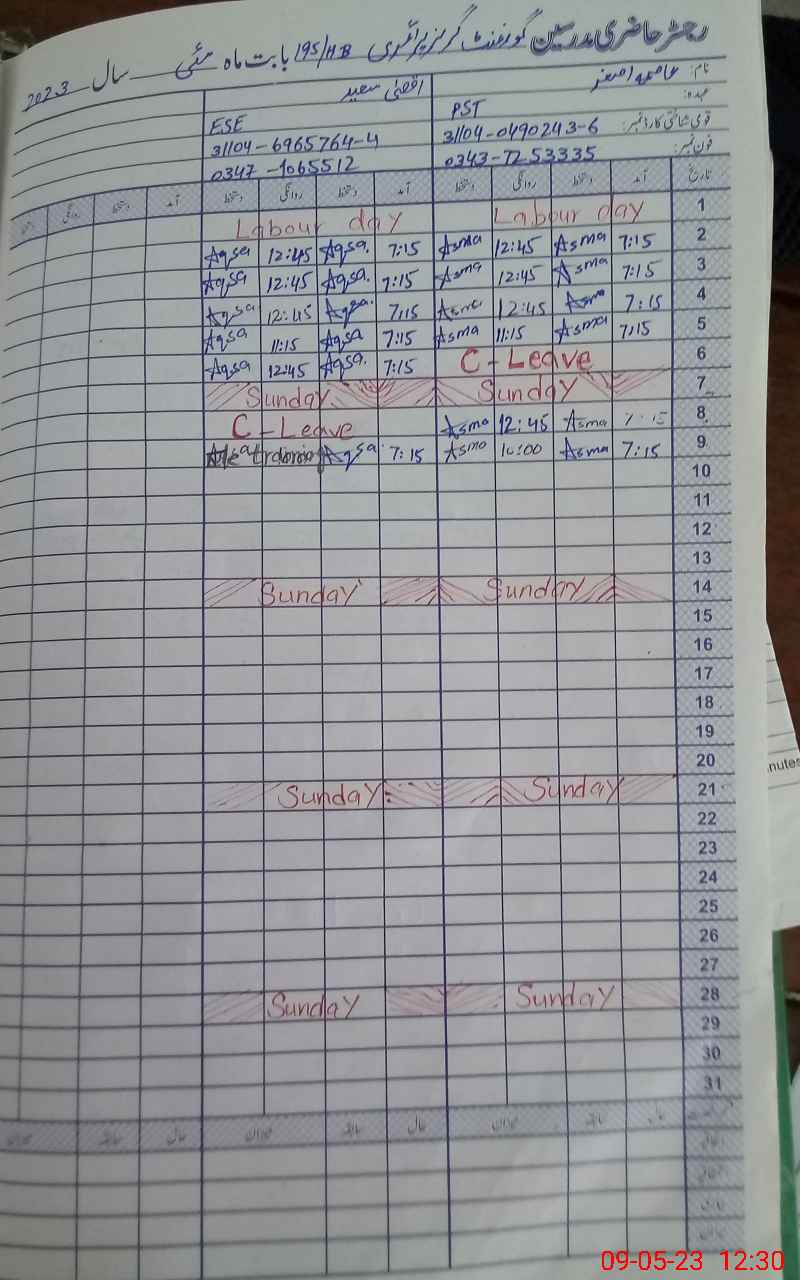 رجسٹر حاضری مدرسین گورنمنٹ گرلز پرائمری 195/HB بابت ماہ مئی سال 2023
نام: عاصمہ اصغر اقصیٰ سعید
عہدہ: PST ESE
قومی شناختی کارڈ نمبر: 31104-0490243-6 31104-6965764-4
فون نمبر: 0343-7253335 0347-1065512
تاریخ آمد دستخط روانگی دستخط آمد دستخط روانگی دستخط آمد دستخط روانگی
1 Labour day Labour day
2 7:15 Asma 12:45 Asma 7:15 Aqsa. 12:45 Aqsa
3 7:15 Asma 12:45 Asma 7:15 Aqsa. 12:45 Aqsa
4 7:15 Asma 12:45 Asma 7:15 Aqsa. 12:45 Aqsa
5 7:15 Asma 11:15 Asma 7:15 Aqsa 11:15 Aqsa
6 C-Leave 7:15 Aqsa. 12:45 Aqsa
7 Sunday Sunday
8 7:15 Asma 12:45 Asma C-Leave
9 7:15 Asma Asma 7:15 Aqsa
10
11
12
13
14 Sunday Sunday
15
16
17
18
19
20
21 Sunday Sunday
22
23
24
25
26
27
28 Sunday Sunday
29
30
31
حال سابقہ میزان حال سابقہ میزان حال سابقہ میزان
nutes
09-05-23 12:30